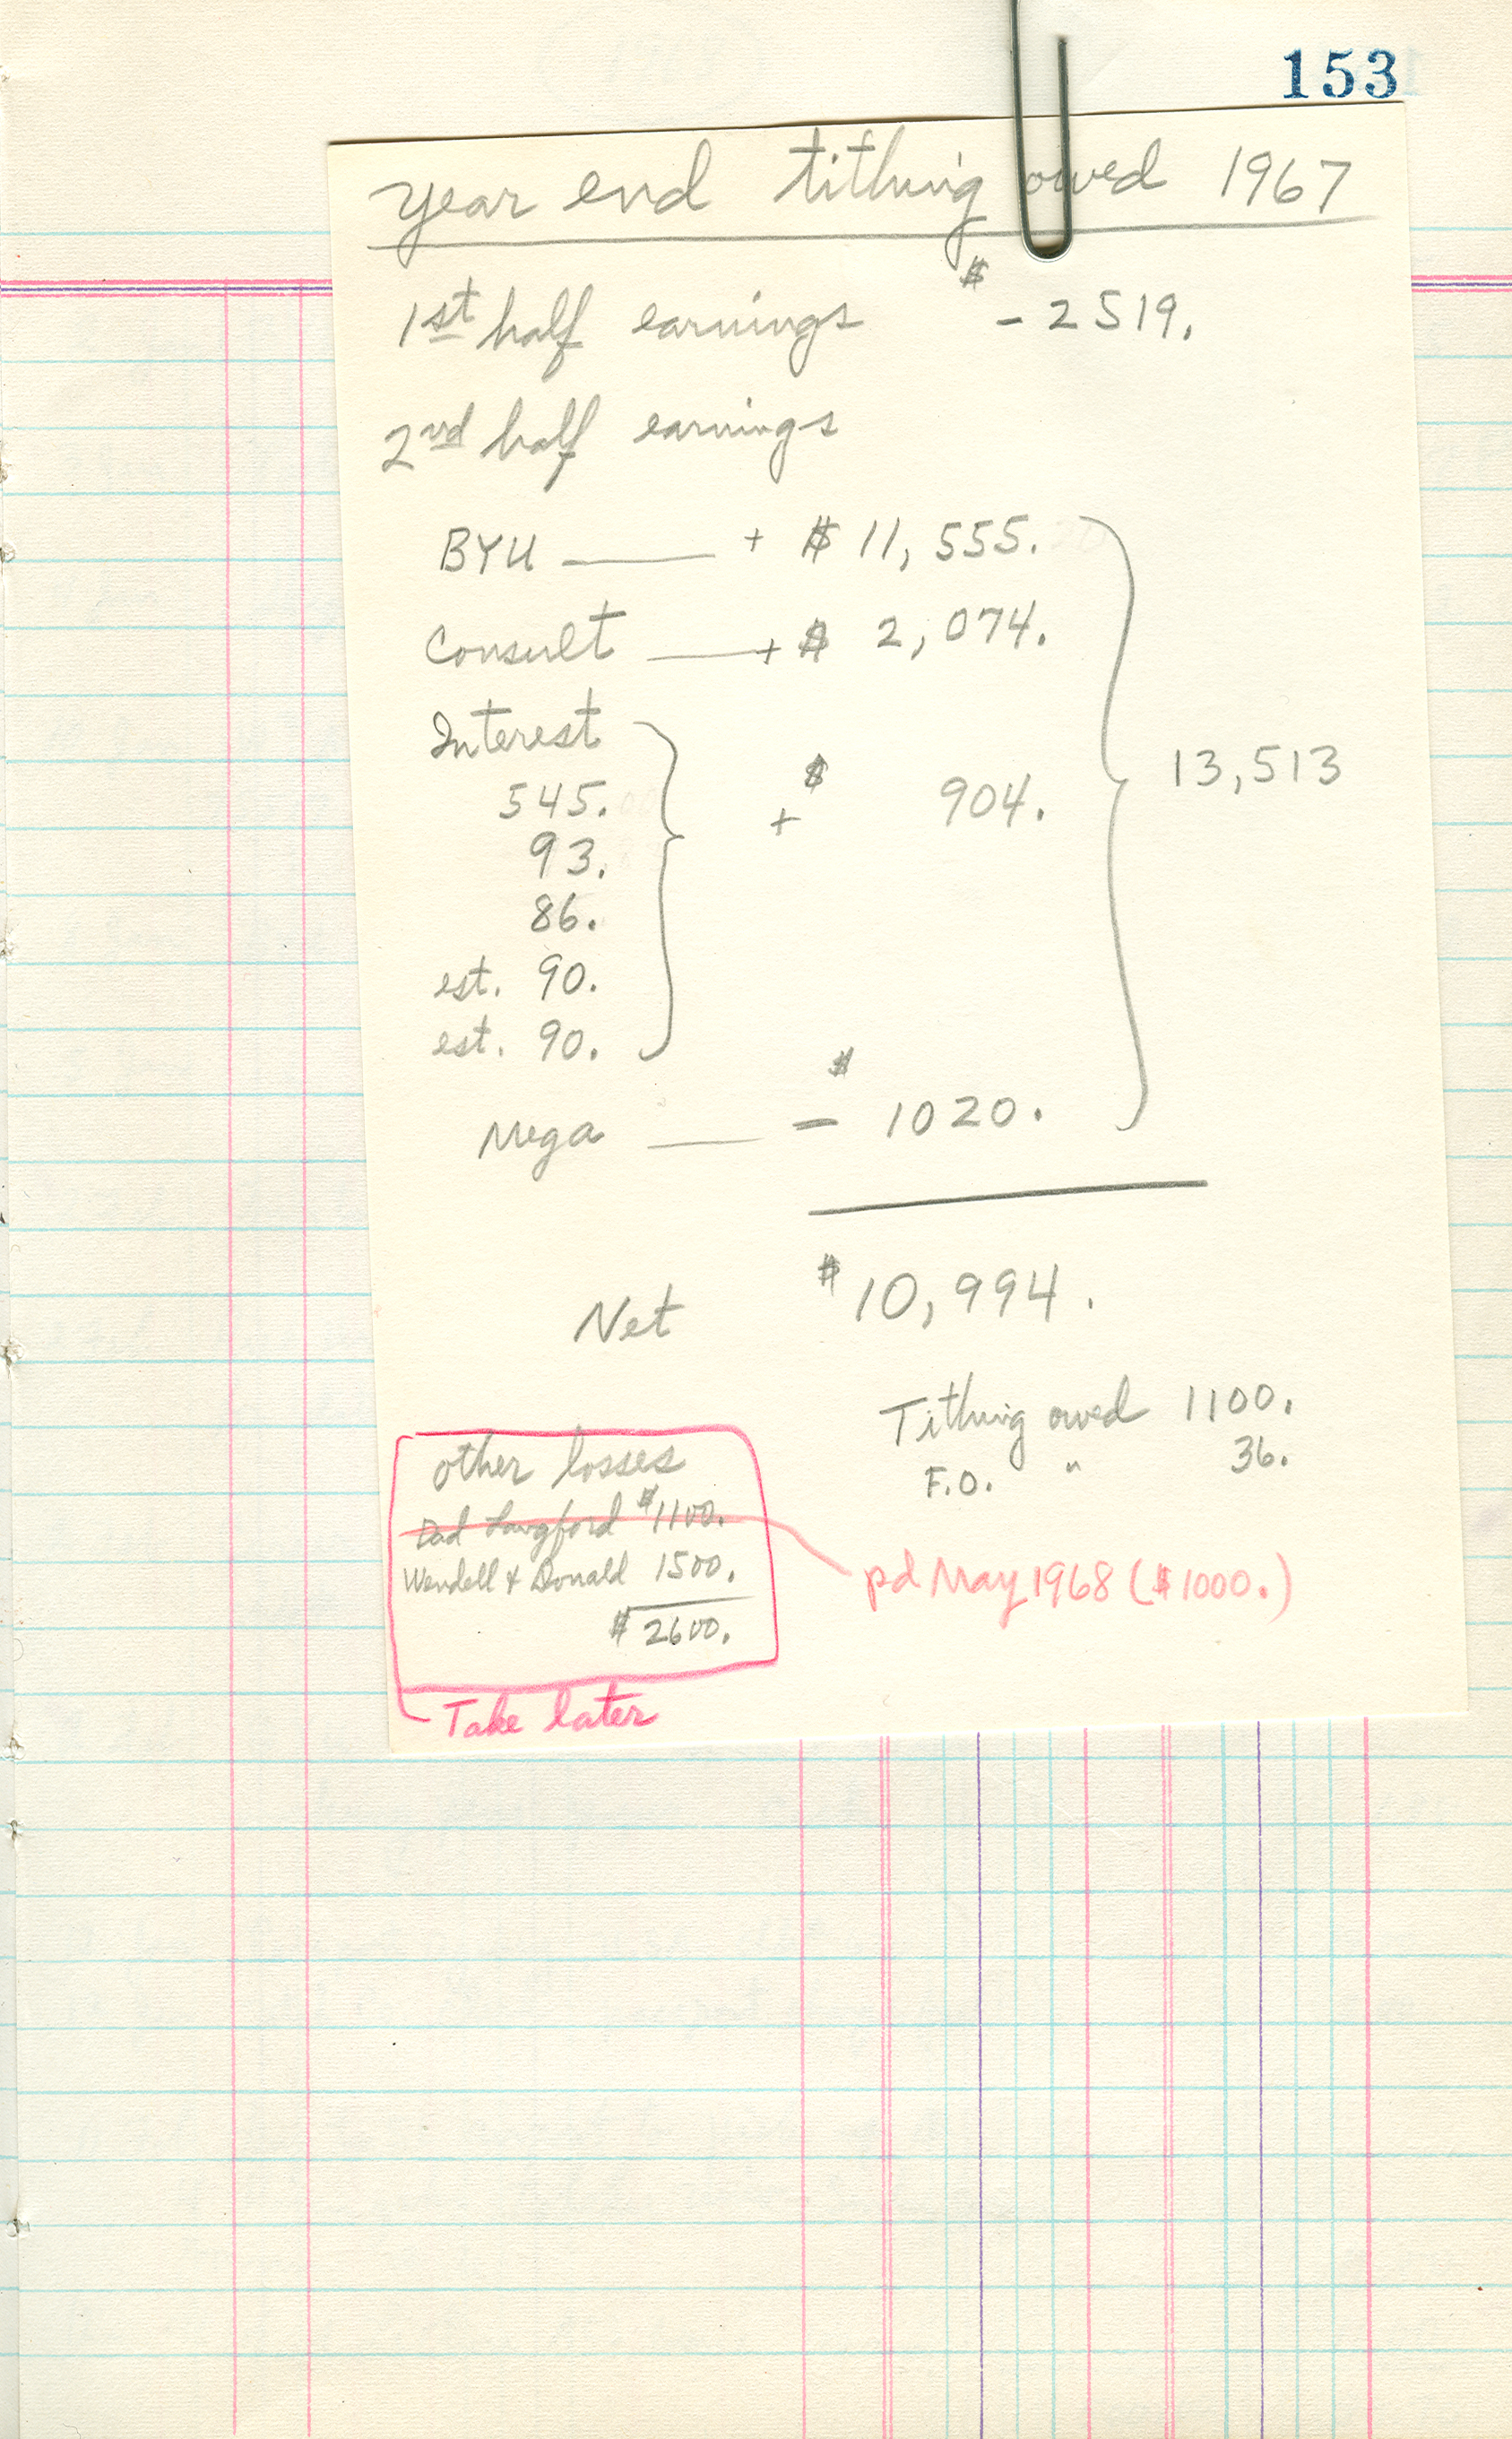 153
year end tithing owed 1967
1st half earnings $ - 2519.
2nd half earnings
BYU + $ 11,555.
Consult + $ 2,074.
Interest
545.
93.
+ $ 904.
13,513
86.
est. 90.
est. 90.
Mega - $ 1020.
Net $ 10,994.
Tithing owed 1100.
F.O. " 36.
other losses
Dad Langford $1100.
Wendell + Donald 1500.
$ 2600.
pd May 1968 ($1000.)
Take later